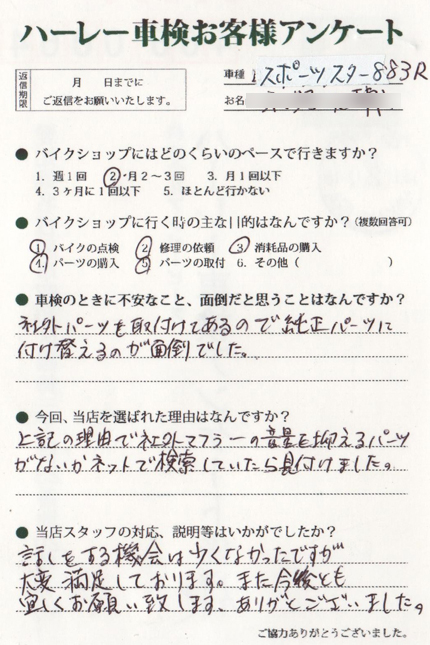 ハーレー車検お客様アンケート
返信期限
月 日までに
ご返信をお願いいたします。
車種 スポーツスター883R
お名
● バイクショップにはどのくらいのペースで行きますか？
1. 週1回 2. 月2～3回 3. 月1回以下
4. 3ヶ月に1回以下 5. ほとんど行かない
● バイクショップに行く時の主な目的はなんですか？（複数回答可）
1. バイクの点検 2. 修理の依頼 3. 消耗品の購入
4. パーツの購入 5. パーツの取付 6. その他（ ）
● 車検のときに不安なこと、面倒だと思うことはなんですか？
社外パーツを取付けてあるので純正パーツに
付け替えるのが面倒でした。
● 今回、当店を選ばれた理由はなんですか？
上記の理由で社外マフラーの音量を抑えるパーツ
がないかネットで検索していたら見付けました。
● 当店スタッフの対応、説明等はいかがでしたか？
話しをする機会は少くなかったですが
大変満足しております。また今後とも
宜しくお願い致します。ありがとございました。
ご協力ありがとうございました。